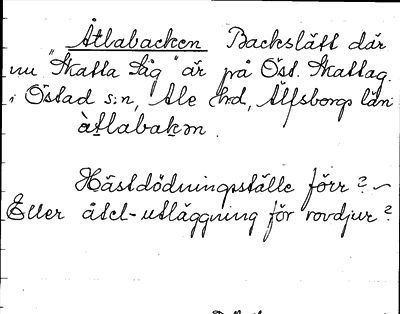 Åtlabacken Backslätt där
nu "Skatta Såg" är på Öst. Skattag.
i Östad s:n, Ale hd, Älfsborgs län
àtlabakən.
Hästdödningsställe förr? –
Eller åtel-utläggning för rovdjur?